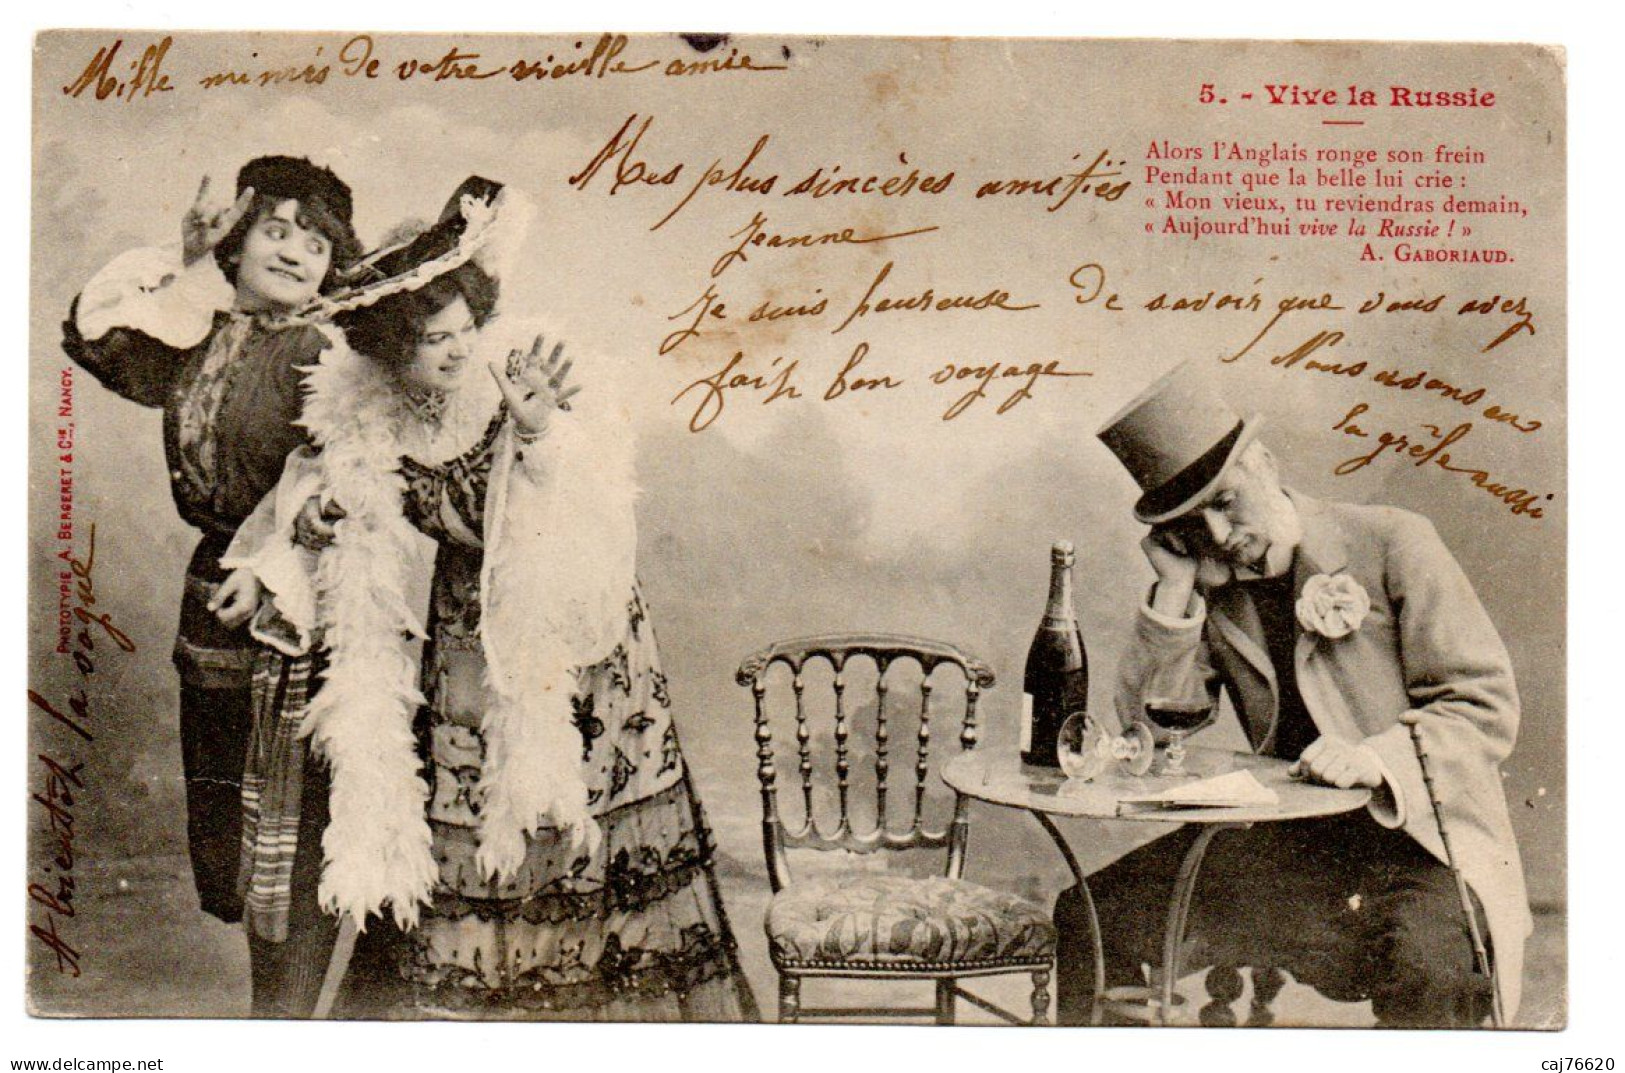 Mille mimis de votre vieille amie
5. - Vive la Russie
Alors l'Anglais ronge son frein
Pendant que la belle lui crie :
« Mon vieux, tu reviendras demain,
« Aujourd'hui vive la Russie ! »
A. GABORIAUD.
Mes plus sincères amitiés
Jeanne
Je suis heureuse de savoir que vous avez
fait bon voyage
Nous avons eu
la grêle aussi
A bientôt la vogue
PHOTOTYPIE A. BERGERET & Cie, NANCY.
caj76620